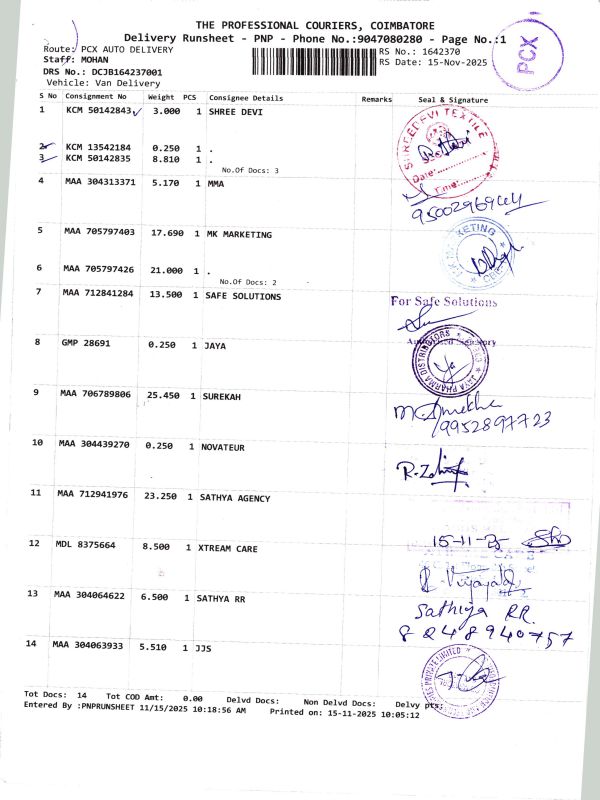 THE PROFESSIONAL COURIERS, COIMBATORE
Delivery Runsheet - PNP - Phone No.:9047080280 - Page No.:1
Route: PCX AUTO DELIVERY
RS No.: 1642370
Staff: MOHAN
RS Date: 15-Nov-2025
DRS No.: DCJB164237001
Vehicle: Van Delivery
PCX
S No Consignment No Weight PCS Consignee Details Remarks Seal & Signature
1 KCM 50142843 3.000 1 SHREE DEVI
2 KCM 13542184 0.250 1 .
3 KCM 50142835 8.810 1 .
No.Of Docs: 3
SHREEDEVI TEXTILE
Date:
Time:
4 MAA 304313371 5.170 1 MMA
9500296944
5 MAA 705797403 17.690 1 MK MARKETING
6 MAA 705797426 21.000 1 .
No.Of Docs: 2
7 MAA 712841284 13.500 1 SAFE SOLUTIONS
For Safe Solutions
Authorised Signatory
8 GMP 28691 0.250 1 JAYA
JAYA PHARMA DISTRIBUTORS
9 MAA 706789806 25.450 1 SUREKAH
9952897723
10 MAA 304439270 0.250 1 NOVATEUR
11 MAA 712941976 23.250 1 SATHYA AGENCY
15-11-25
12 MDL 8375664 8.500 1 XTREAM CARE
13 MAA 304064622 6.500 1 SATHYA RR
Sathiya RR.
8248940757
14 MAA 304063933 5.510 1 JJS
PRIVATE LIMITED
Tot Docs: 14 Tot COD Amt: 0.00 Delvd Docs: Non Delvd Docs: Delvy pts:
Entered By :PNPRUNSHEET 11/15/2025 10:18:56 AM Printed on: 15-11-2025 10:05:12